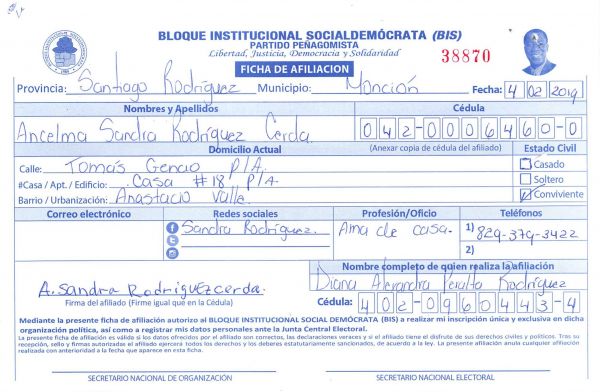 BLOQUE INSTITUCIONAL SOCIALDEMÓCRATA (BIS)
PARTIDO PEÑAGOMISTA
Libertad, Justicia, Democracia y Solidaridad
38870
FICHA DE AFILIACION
Provincia: Santiago Rodríguez Municipio: Monción Fecha: 4 02 2019
Nombres y Apellidos Cédula
Ancelma Sandra Rodríguez Cerda. 042-0006460-0
Domicilio Actual (Anexar copia de cédula del afiliado) Estado Civil
Calle: Tomás Genao P/A. Casado
#Casa / Apt. / Edificio: Casa #18 P/A. Soltero
Barrio / Urbanización: Anastacio Valle. Conviviente
Correo electrónico Redes sociales Profesión/Oficio Teléfonos
Sandra Rodríguez. Ama de casa. 1) 829-379-3422
2)
Nombre completo de quien realiza la afiliación
Diana Alexandra Peralta Rodríguez
A. Sandra Rodriguez cerda.
Firma del afiliado (Firme igual que en la Cédula) Cédula: 402-0960443-4
Mediante la presente ficha de afiliación autorizo al BLOQUE INSTITUCIONAL SOCIALDEMÓCRATA (BIS) a realizar mi inscripción única y exclusiva en dicha
organización política, así como a registrar mis datos personales ante la Junta Central Electoral.
La presente ficha de afiliación es válida si los datos ofrecidos por el afiliado son correctos, las declaraciones veraces y si el afiliado tiene el disfrute de sus derechos civiles y políticos. Tras su
recepción, sello y firmas autorizadas el afiliado ejercera todos los derechos y los deberes estatutariamente sancionados, de acuerdo a la ley. La presente afiliación anula cualquier afiliación
realizada con anterioridad a la fecha que aparece en esta ficha.
SECRETARIO NACIONAL DE ORGANIZACIÓN SECRETARIO NACIONAL ELECTORAL